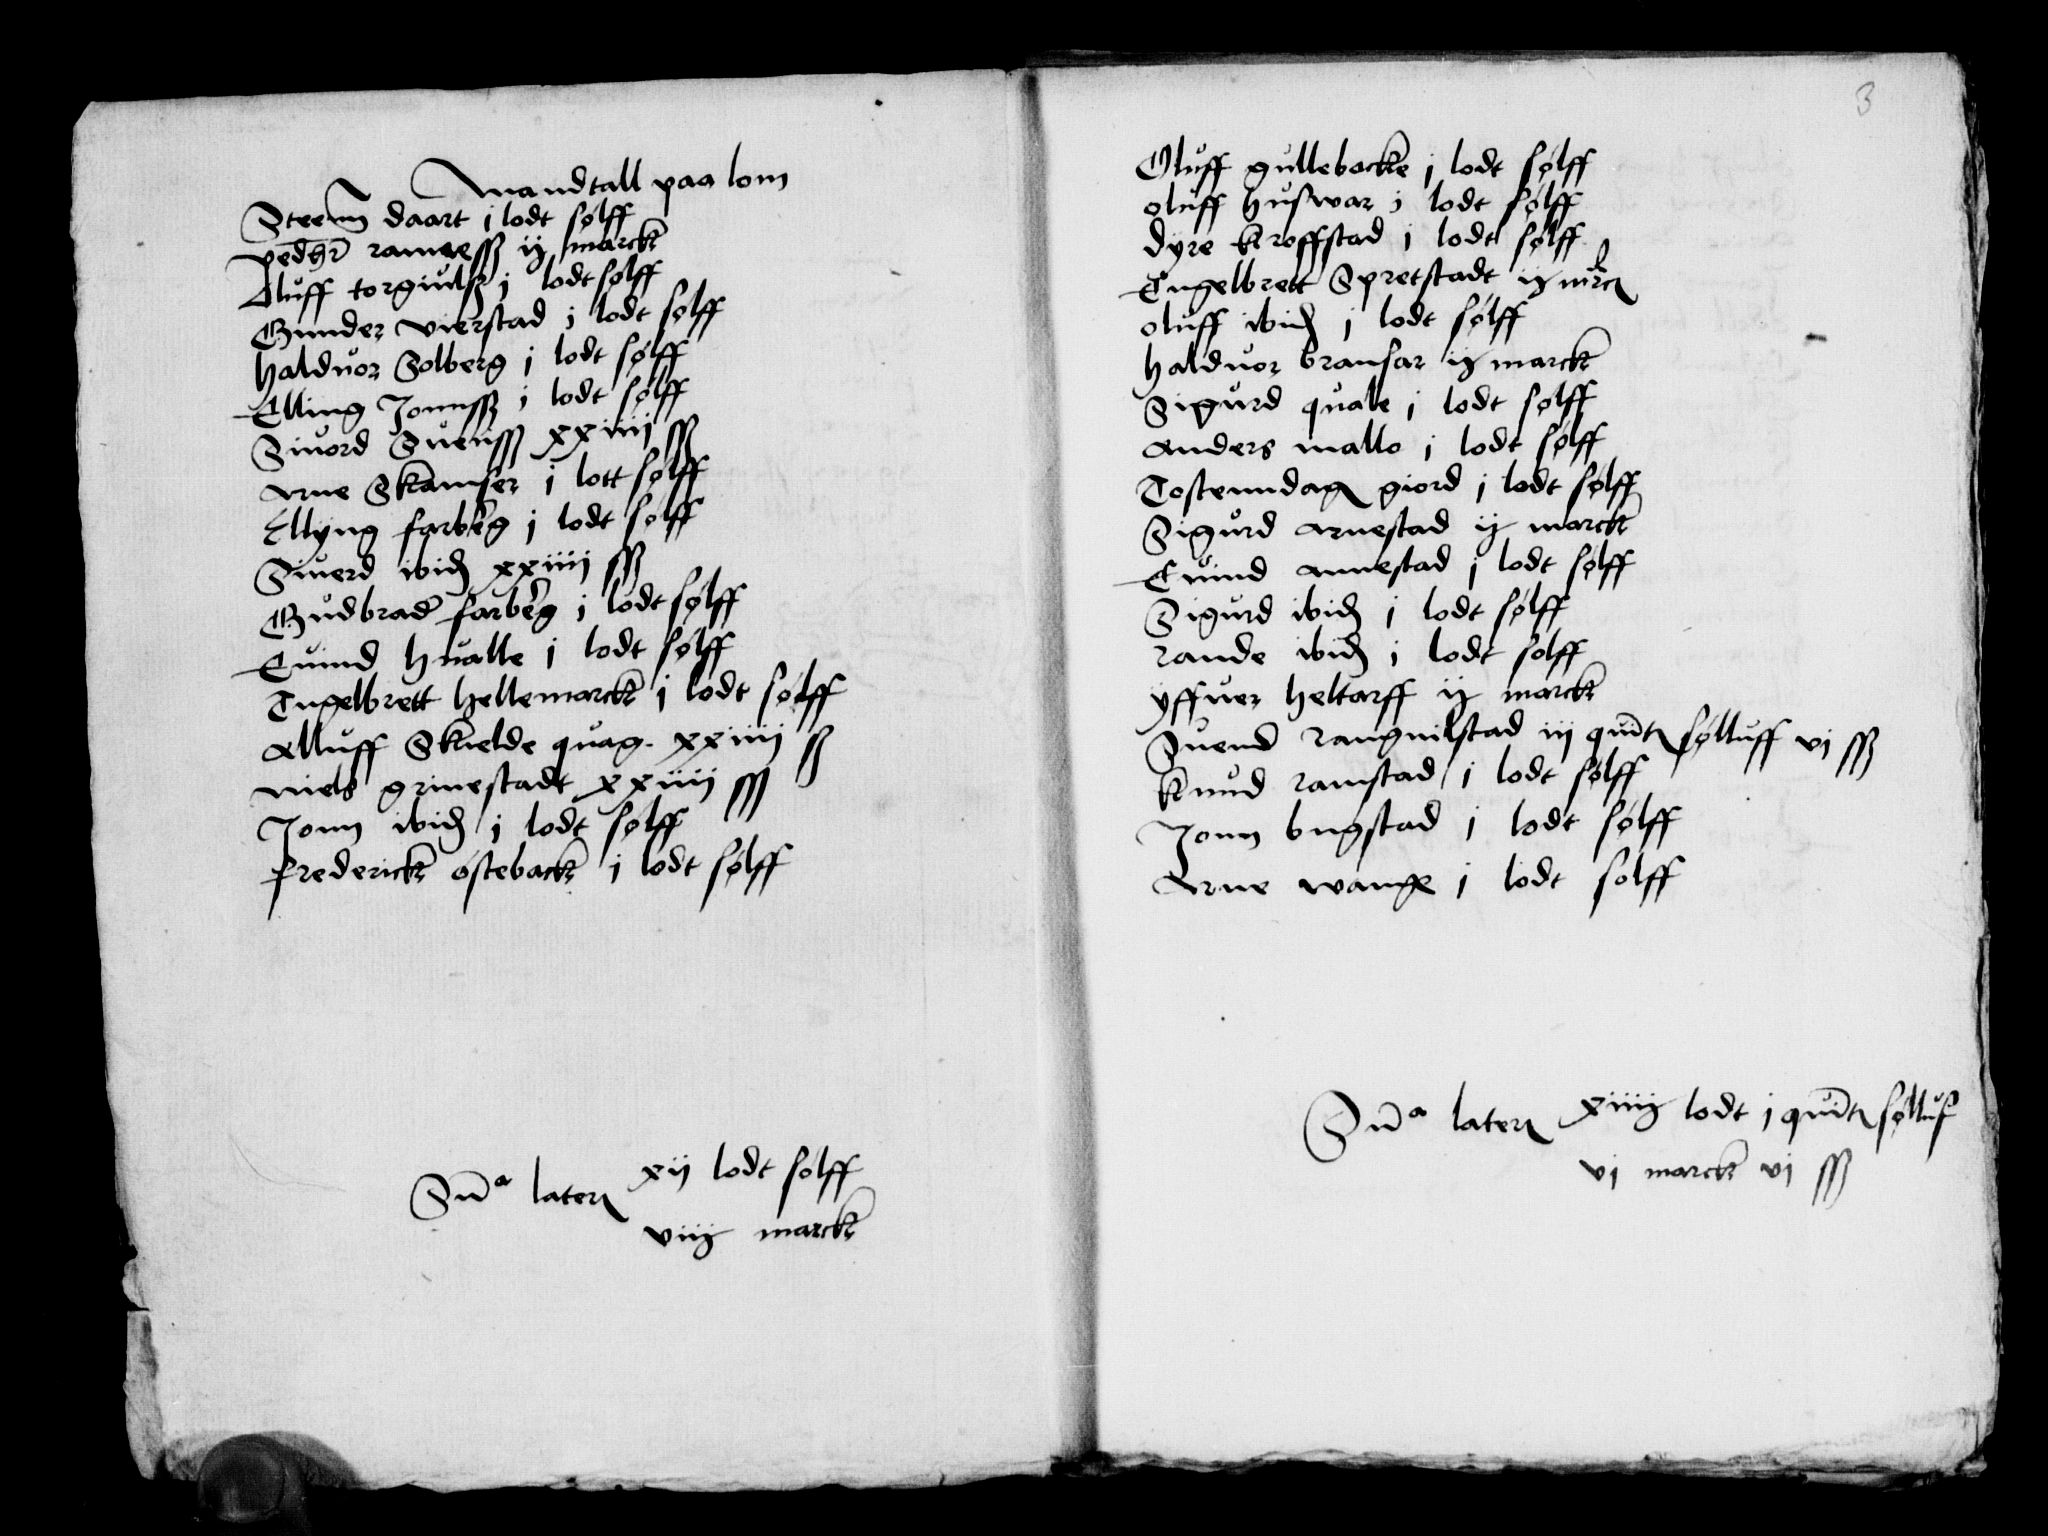 Mandtall paa lom
Steenn daart j lodt sølff
pedher rameess ij marck
Oluff torgiulss j lodt sølff
Gunder vierstad j lodt sølff
Halduor Solberg j lodt sølff
Elling Jonnss j lodt sølff
Siuord Suenss xxiiij ss
Arne Skamser j lott sølff
Ellyng farberg j lodt sølff
Siuerd ibid xxiiij ss
Gudbrad farberg j lodt sølff
Euind hualle j lodt sølff
Engelbrett hellemarck j lodt sølff
Alluff Skielde quag. xxiiij ß
Niels grinestadt xxiiij ss
Jonn ibid j lodt sølff
frederick østeback j lodt sølff
Sūᵃ lateris xij lodt sølff
viij marck
3
Oluff gullebacke j lodt sølff
oluff huswar j lodt sølff
Dyre kroffstad j lodt sølff
Engelbrett Spretstadt ij mrck
oluff ibid j lodt sølff
Halduor bransar ij marck
Sigurd quale j lodt sølff
Anders mallo j lodt sølff
Tostenndag giord j lodt sølff
Sigurd arnestad ij marck
Euind annestad j lodt sølff
Sigurd ibid j lodt sølff
rande ibid j lodt sølff
yffuer heltorff ij marck
Suend rangnilstad iij quit sølluff vj ss
knud ramstad j lodt sølff
Jonn bugstad j lodt sølff
Arne wange j lodt sølff
Sūᵃ lateris xiiij lodt j quit sølluf
vj marck vj ss